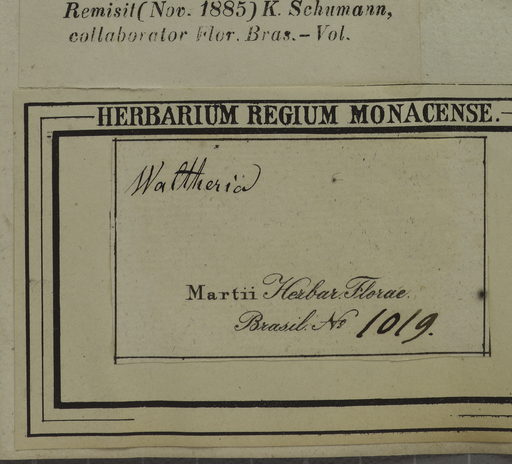 Remisit (Nov. 1885) K. Schumann,
collaborator Flor. Bras. – Vol.
HERBARIUM REGIUM MONACENSE.
Waltheria
Martii Herbar. Florae
Brasil. No 1019.